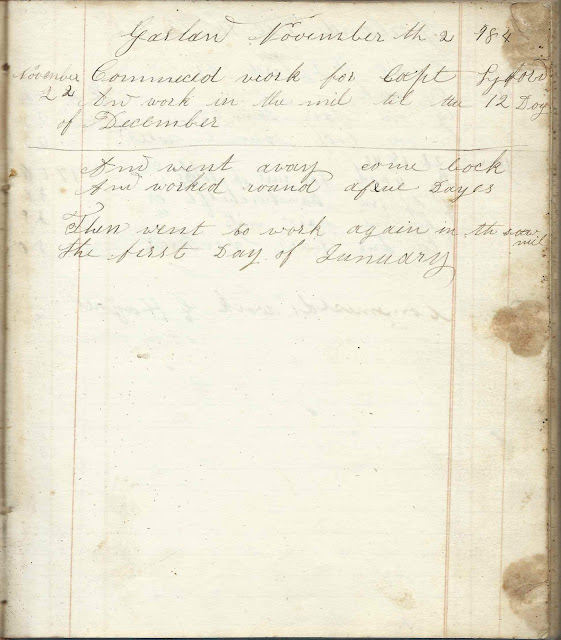 Garland November th 2 184
November Commeced work for Capt Lyford
22 And work in the mil til the 12 Day
of December
And went away come back
And worked round afeue Dayes
Then went to work again in th saw mil
the first Day of Junuary